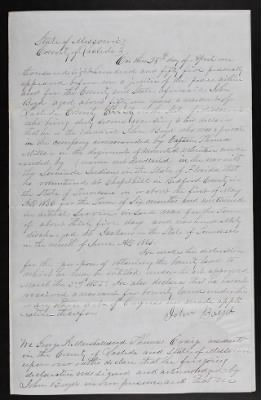 State of Missouri
County of Laclede
On this 28th day of April one
thousand eight hundred and fifty five personally
appeared before me a justice of the peace within
and for the County and State aforesaid John
Boyd aged about fifty years a resident of
Laclede County
who being duly sworn according to law declares
that he is the identical John Boyd who was a private
in the company commanded by Captain
in the regiment of
by in the war with
the Seminole Indians in the State of Florida that
he volunteered at in County in
the State of on or about the first of May
AD 1836 for the term of six months and continued
in actual service in said war for the term
of about thirty five days and was honorably
discharged at in the State of Tennessee
in the month of June AD 1836
He makes this declaration
for the purpose of obtaining the bounty land to
which he may be entitled under the act approved
March the 3rd 1855 he also declares that he has not
received a warrant for bounty land under this or
any other act of Congress nor made appli-
cation therefor
John Boyd
We and Thomas Craig residents
in the County of Laclede and State of Missouri
upon our oaths declare that the foregoing
declaration was signed and acknowledged by
John Boyd in our presence and that we